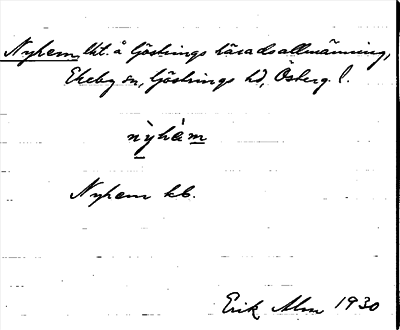 Nyhem, lht. å Göstrings häradsallmänning,
Ekeby sn, Göstrings hd, Österg. l.
nỳhèm
Nyhem kb.
Erik Alm 1930